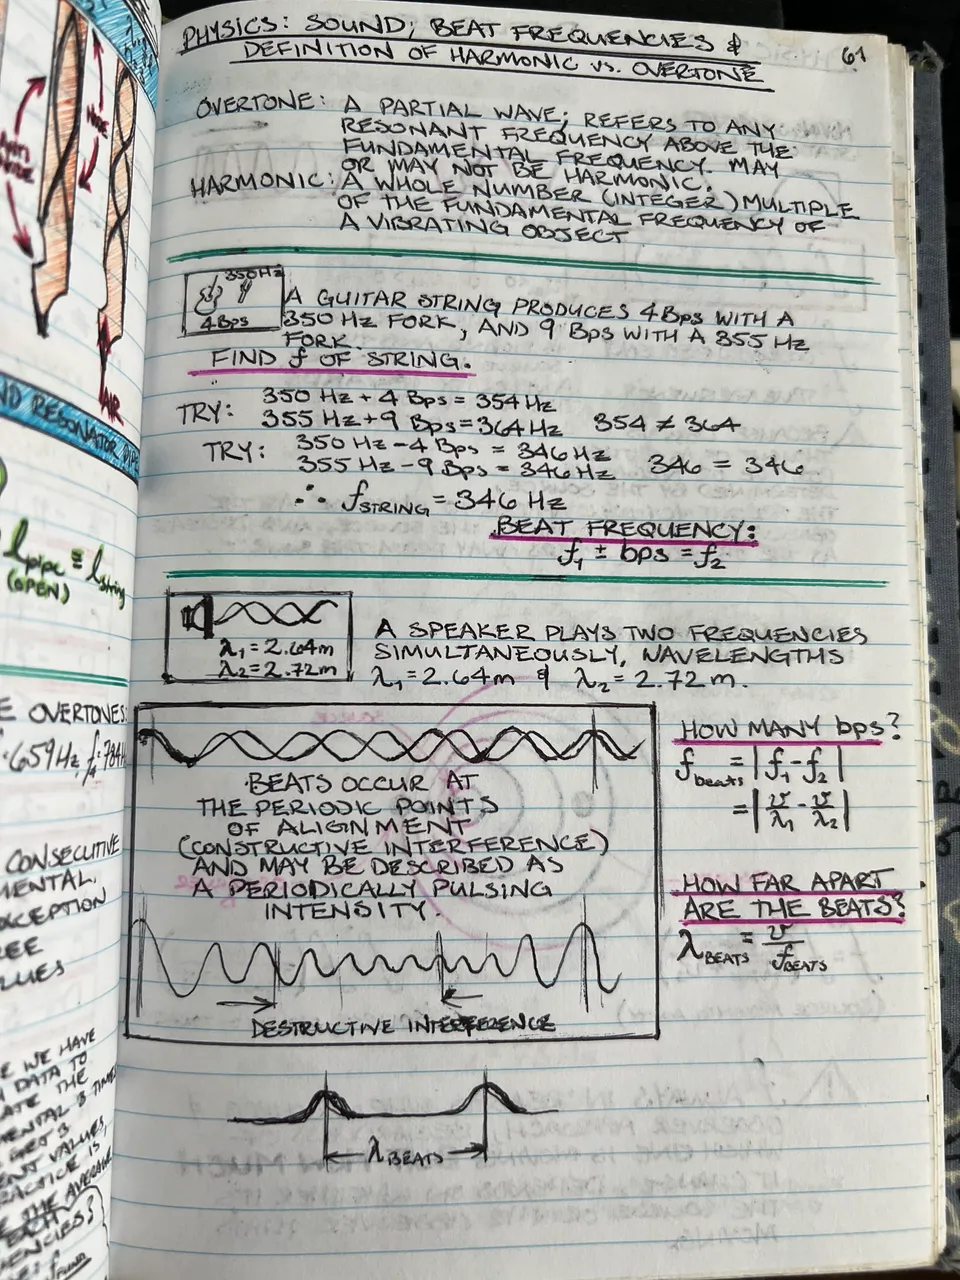 PHYSICS: SOUND; BEAT FREQUENCIES &
DEFINITION OF HARMONIC VS. OVERTONE
61
OVERTONE: A PARTIAL WAVE; REFERS TO ANY
RESONANT FREQUENCY ABOVE THE
FUNDAMENTAL FREQUENCY. MAY
OR MAY NOT BE HARMONIC.
HARMONIC: A WHOLE NUMBER (INTEGER) MULTIPLE
OF THE FUNDAMENTAL FREQUENCY OF
A VIBRATING OBJECT
350 Hz
4 Bps
A GUITAR STRING PRODUCES 4 Bps WITH A
350 HZ FORK, AND 9 Bps WITH A 355 Hz
FORK.
FIND f OF STRING.
TRY: 350 Hz + 4 Bps = 354 Hz
355 Hz + 9 Bps = 364 Hz 354 ≠ 364
TRY: 350 Hz - 4 Bps = 346 Hz
355 Hz - 9 Bps = 346 Hz 346 = 346
∴ fSTRING = 346 Hz
BEAT FREQUENCY:
f1 ± bps = f2
λ1 = 2.64m
λ2 = 2.72m
A SPEAKER PLAYS TWO FREQUENCIES
SIMULTANEOUSLY, WAVELENGTHS
λ1 = 2.64m & λ2 = 2.72m.
BEATS OCCUR AT
THE PERIODIC POINTS
OF ALIGNMENT
(CONSTRUCTIVE INTERFERENCE)
AND MAY BE DESCRIBED AS
A PERIODICALLY PULSING
INTENSITY.
DESTRUCTIVE INTERFERENCE
HOW MANY bps?
fbeats = |f1 - f2|
= |v/λ1 - v/λ2|
HOW FAR APART
ARE THE BEATS?
λBEATS = v/fBEATS
λBEATS
NODE
AIR
ND RESONATOR
lpipe ≅ lstring
(OPEN)
E OVERTONES:
659Hz
CONSECUTIVE
MENTAL.
XCEPTION
REE
LUES
E WE HAVE
DATA TO
ATE THE
MENTAL 3 TIMES
GET 3
ENT VALUES,
RACTICE IS
THE AVERAGE
EACH
ENCIES?